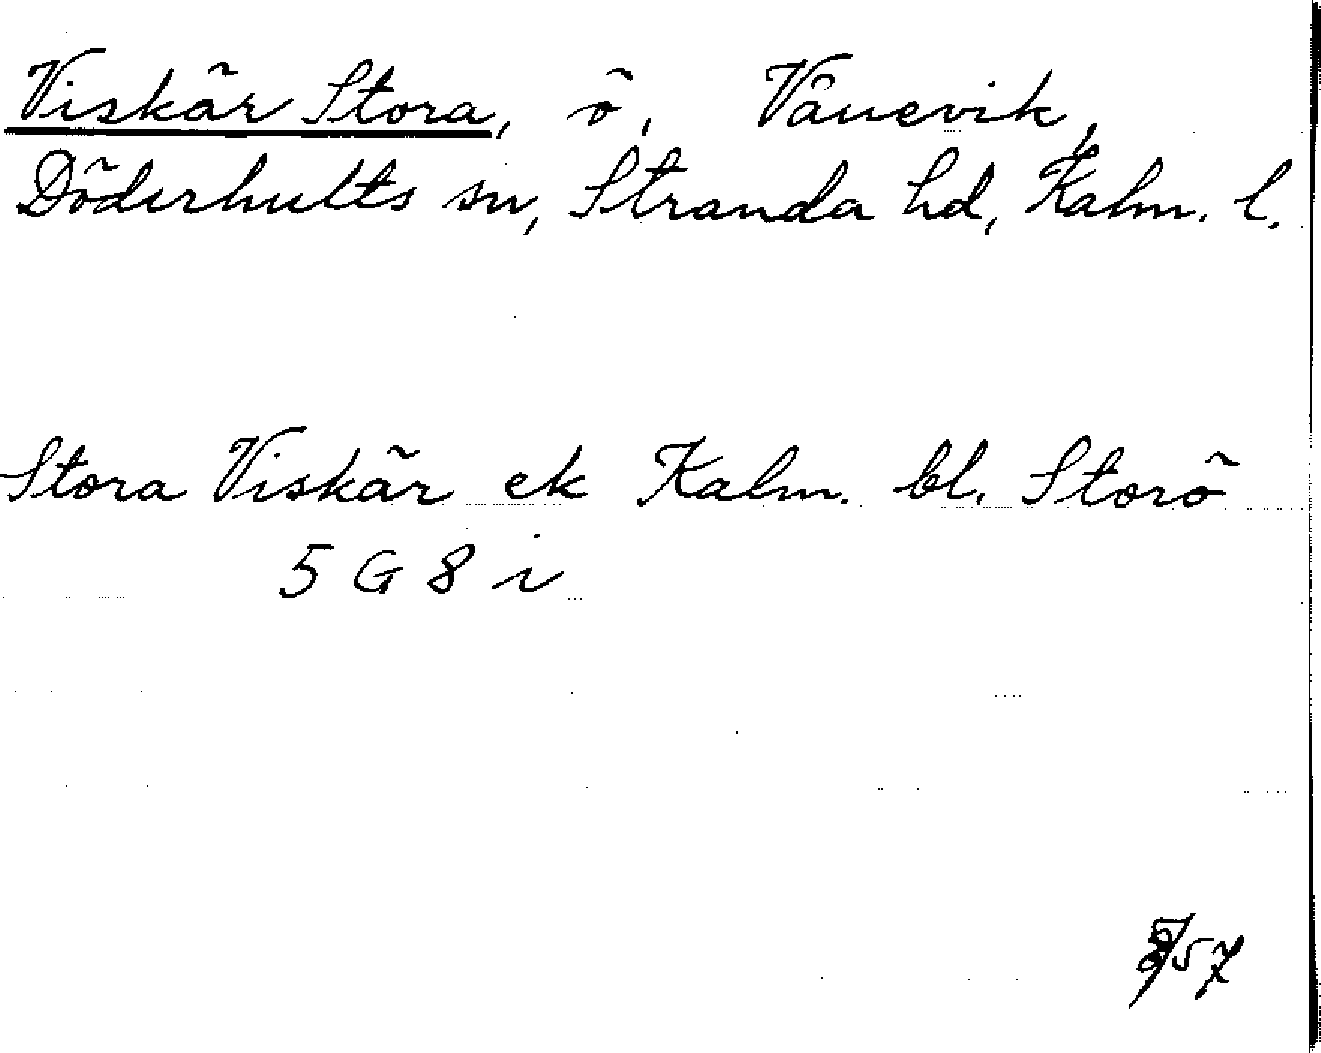 Viskär Stora, ö, Vånevik,
Döderhults sn, Stranda hd, Kalm. l.
Stora Viskär ek Kalm. bl. Storö
5 G 8 i